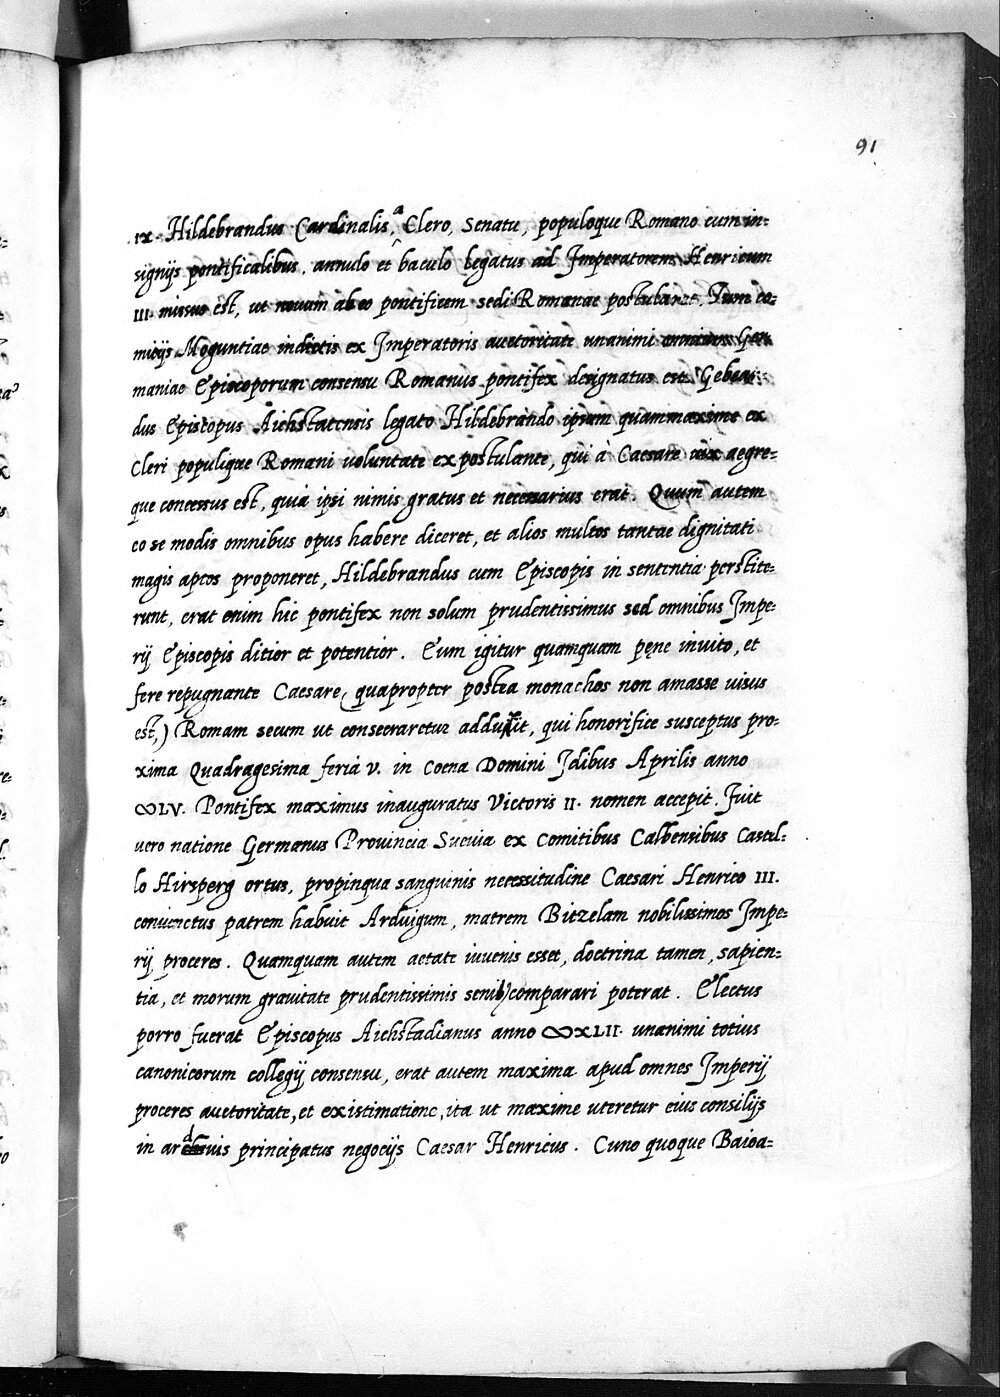 91
.IX. Hildebrandus Cardinalis, a Clero, Senatu, populoque Romano cum in=
signijs pontificalibus, annulo et baculo legatus ad Imperatorem Henricum
III. missus est, ut novum ab eo pontificem sedi Romanae postularet. Tum co=
mitijs Moguntiae indictis ex Imperatoris auctoritate unanimi omnium Ger
maniae Episcoporum consensu Romanus pontifex designatus est Gebear=
dus Episcopus Aichstatensis legato Hildebrando ipsum quammaxime ex
Cleri populique Romani voluntate expostulante, qui à Caesare vix aegre=
que concessus est, quia ipsi nimis gratus et necessarius erat. Quum autem
eo se modis omnibus opus habere diceret, et alios multos tantae dignitati
magis aptos proponeret, Hildebrandus cum Episcopis in sententia perstite=
runt, erat enim hic pontifex non solum prudentissimus sed omnibus Impe=
rij Episcopis ditior et potentior. Eum igitur quamquam pęne invito, et
fere repugnante Caesare, (quapropter postea monachos non amasse visus
est,) Romam secum ut consecraretur adduxit, qui honorifice susceptus pro=
xima Quadragesima feria v. in Coena Domini Idibus Aprilis anno
ↀLV. Pontifex maximus inauguratus Victoris II. nomen accepit. Fuit
vero natione Germanus Provincia Suevia ex Comitibus Calbensibus Castel=
lo Hirsperg ortus, propinqua sanguinis necessitudine Caesari Henrico III.
coniunctus patrem habuit Arduigum, matrem Bitzelam nobilissimos Impe=
rij proceres. Quamquam autem aetate iuvenis esset, doctrina tamen, sapien=
tia, et morum gravitate prudentissimis senib) comparari poterat. Electus
porro fuerat Episcopus Aichstadianus anno ↀXLII. unanimi totius
canonicorum collegij consensu, erat autem maxima apud omnes Imperij
proceres auctoritate, et existimatione, ita ut maxime uteretur eius consilijs
in arduis principatus negocijs Caesar Henricus. Cuno quoque Baioa=